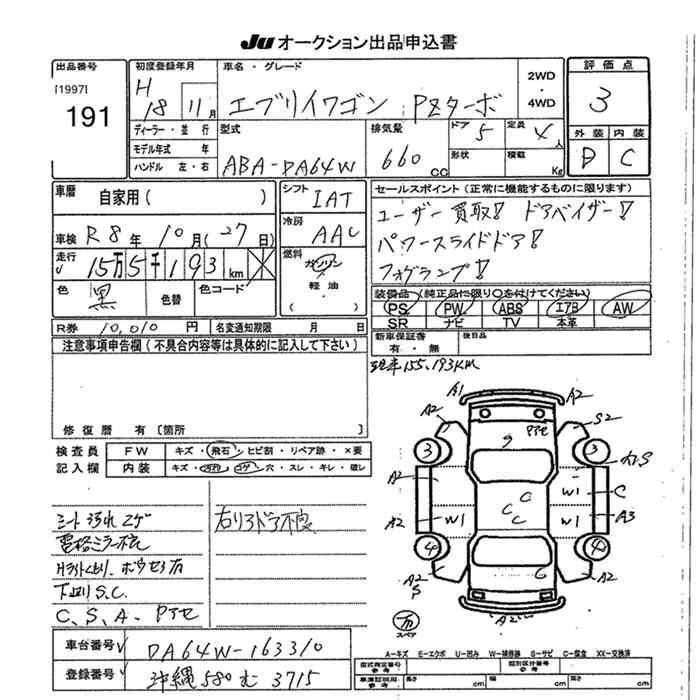 JU オークション出品申込書
出品番号
[1997]
191
初度登録年月
H 18 11月
車名・グレード
エブリイワゴン PZターボ
2WD
・
4WD
評価点
3
外装 内装
D C
ディーラー・並行
モデル年式 年
ハンドル 左・右
型式
ABA-DA64W
排気量
660 cc
ドア 5
形状
定員 4人
積載 Kg
車歴
自家用( )
車検 R8年 10月(27日)
走行 15万5千193km
色 黒
色替
色コード
シフト IAT
冷房 AAC
燃料
ガソリン
・
軽油
( )
セールスポイント(正常に機能するものに限ります)
ユーザー買取! ドアバイザー!
パワースライドドア!
フォグランプ!
装備品(純正品に限り○を付けてください)
PS PW ABS エアB AW
SR ナビ TV 本革
R券 10,010円
名変通知期限 月 日
新車保証書
有・無
後日品
注意事項申告欄(不具合内容等は具体的に記入して下さい)
現車155,193KM
修復歴 有〔箇所 〕
検査員
記入欄
FW キズ・飛石・ヒビ割・リペア跡・×要
内装 キズ・汚れ・コゲ・穴・スレ・キレ・破レ
シート汚れコゲ
電格ミラー不良
Hライトくもり、
下廻りS.C.
C、S、A、アセ
右リアドア不良
A1
A2 A2 S2
アセ
3 3
A2 A1.S
W1 C
A2 W1 C C C W1 A3
4 4
A2 S
A2 S
G
A2
スペア
A-キズ E-エクボ U-凹み W-補修器 S-サビ C-腐食 XX-交換済
車台番号 DA64W-163310
登録番号 沖縄580む3715
型式指定番号
参考
類別区分番号
参考
車庫証明用
参考
長さ cm 幅 cm 高さ cm